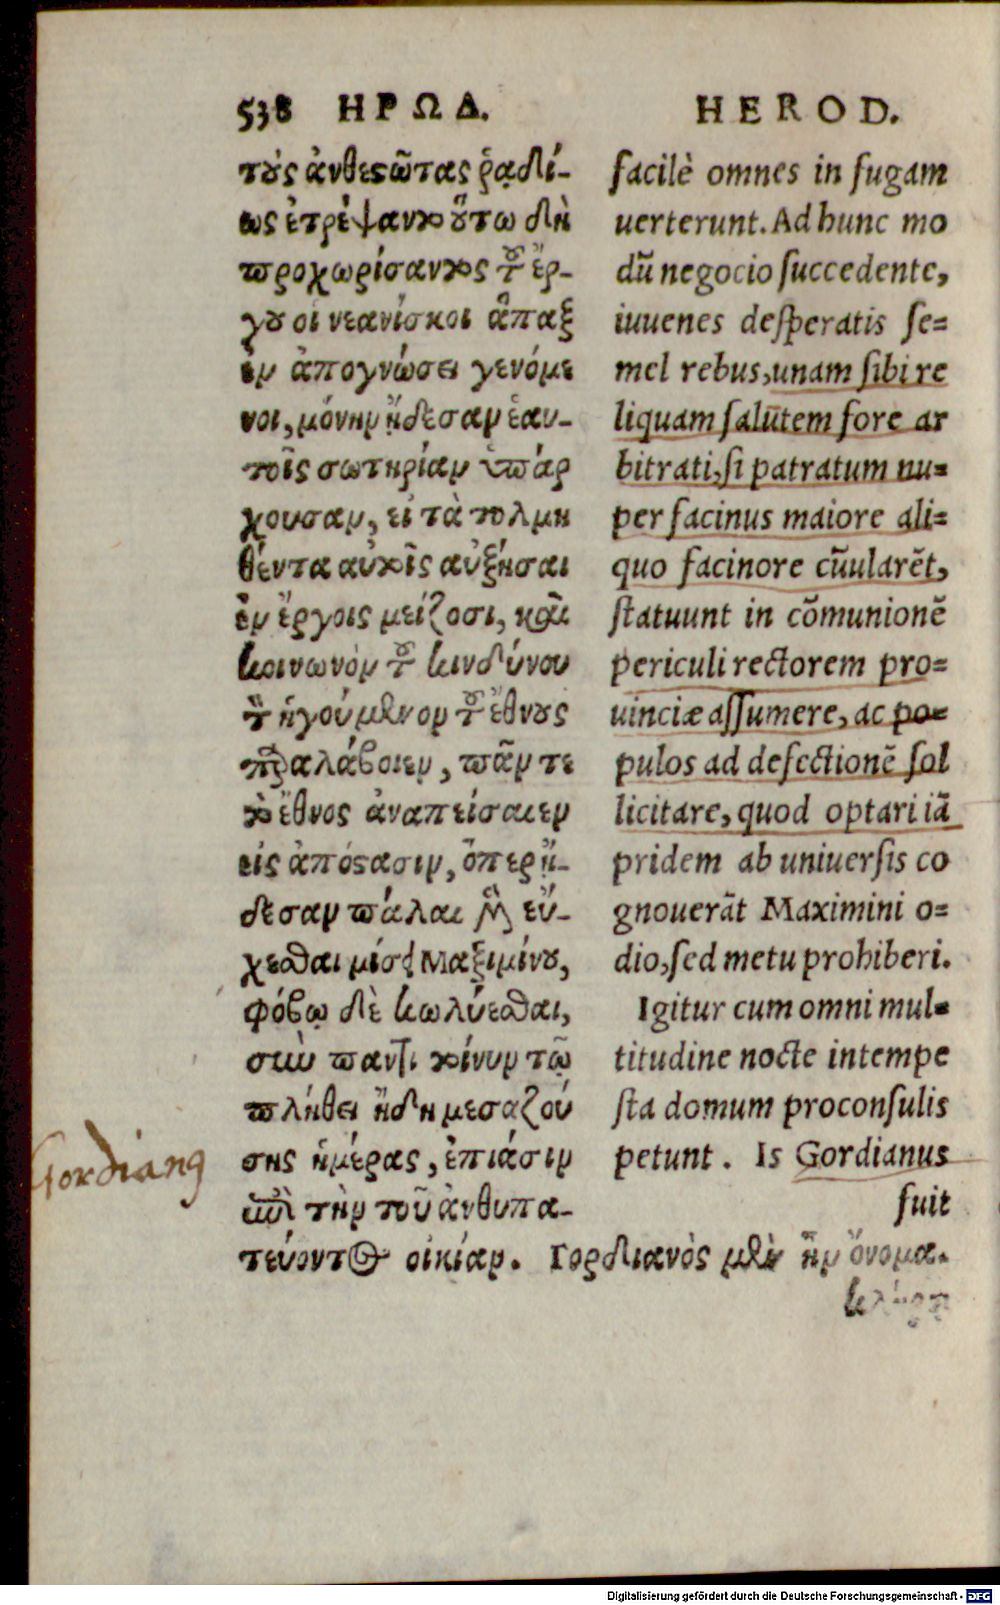 538 ΗΡΩΔ.
τοὺς ἀνθεστῶτας ῥᾳδί-
ως ἐτρέψαντο. οὕτω δὴ
προχωρήσαντος τοῦ ἔρ-
γου οἱ νεανίσκοι ἅπαξ
ἐν ἀπογνώσει γενόμε
νοι, μόνην ᾔδεσαν ἑαυ-
τοῖς σωτηρίαν ὑπάρ
χουσαν, εἰ τὰ τολμη
θέντα αὐτοῖς αὐξήσαι
ἐν ἔργοις μείζοσι, καὶ
κοινωνὸν τοῦ κινδύνου
τὸν ἡγούμενον τοῦ ἔθνους
παραλάβοιεν, πᾶν τε
τὸ ἔθνος ἀναπείσαιεν
εἰς ἀπόστασιν, ὅπερ ᾔ-
δεσαν πάλαι μὲν εὔ-
χεσθαι μίσει Μαξιμίνου,
φόβῳ δὲ κωλύεσθαι,
σὺν παντὶ τοίνυν τῷ
πλήθει ἤδη μεσαζού
σης ἡμέρας, ἐπιάσιν
ἐπὶ τὴν τοῦ ἀνθυπα-
τεύοντος οἰκίαν. Γορδιανὸς μὲν ἦν ὄνομα.
HEROD.
facilè omnes in fugam
uerterunt. Ad hunc mo
dũ negocio succedente,
iuuenes desperatis se=
mel rebus, unam sibi re
liquam salutem fore ar
bitrati, si patratum nu=
per facinus maiore ali=
quo facinore cũularẽt,
statuunt in cõmunionẽ
periculi rectorem pro=
uinciæ assumere, ac po=
pulos ad defectionẽ sol
licitare, quod optari iã
pridem ab uniuersis co
gnouerãt Maximini o=
dio, sed metu prohiberi.
Igitur cum omni mul=
titudine nocte intempe
sta domum proconsulis
petunt. Is Gordianus
fuit
Gordianꝰ
Digitalisierung gefördert durch die Deutsche Forschungsgemeinschaft - DFG